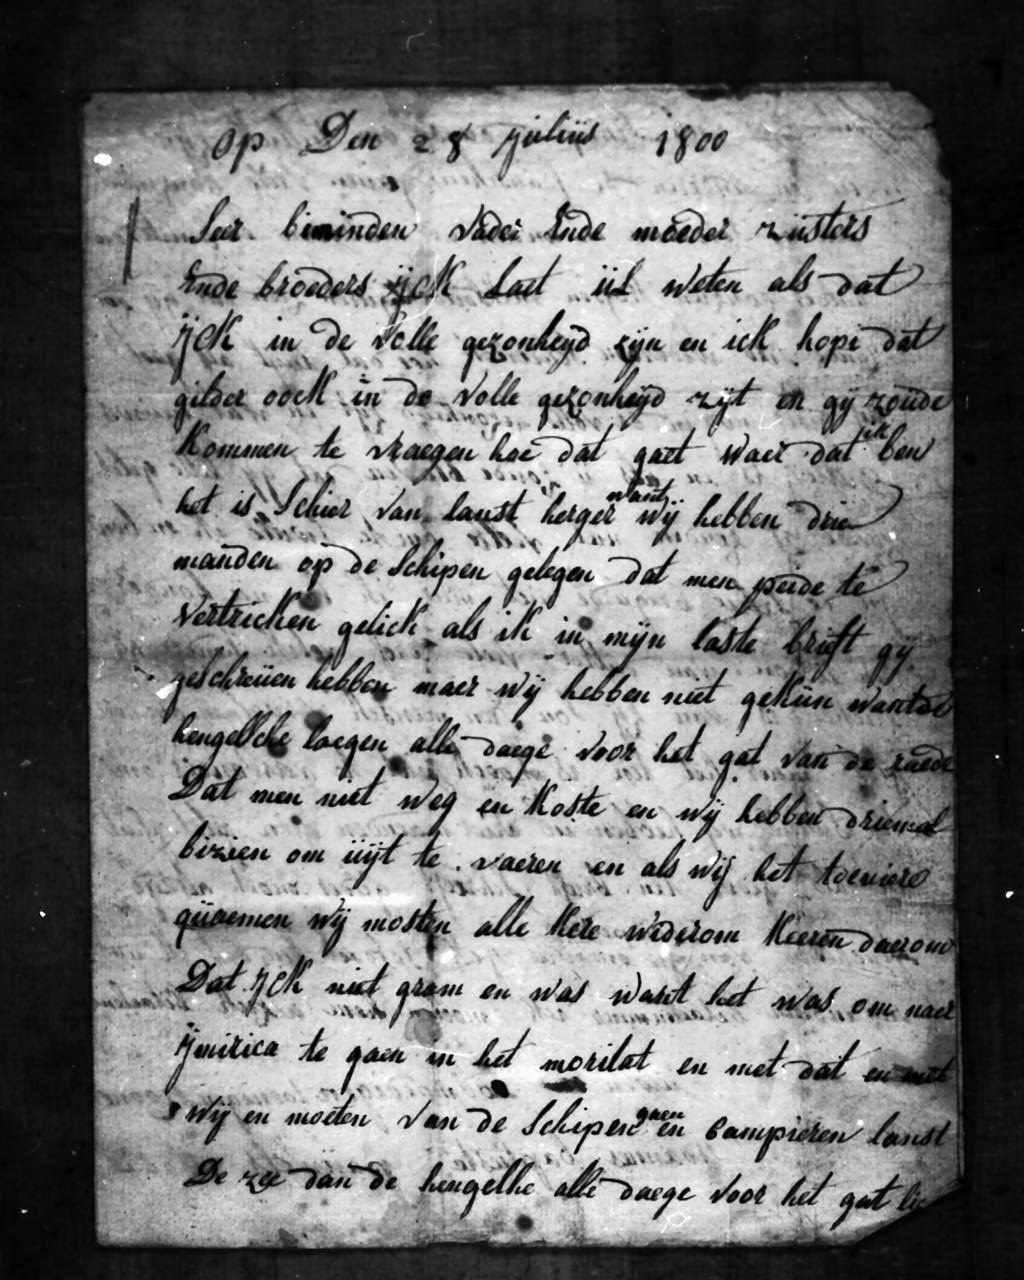 Op Den 28 julius 1800
Seer biminden vader Ende moeder zusters
Ende broeders ijck Laet ul weten als dat
ijck in de volle gezonheyd zijn en ick hope dat
gilder oock in de volle gezonheyd zijt en gij zoude
kommen te vraegen hoe dat gaet waer dat ik ben
het is Schier van lanst herger want wij hebben drie
manden op de Schipen gelegen dat men peide te
vertricken gelick als ik in mijn laste brift gij
geschreuen hebben maer wij hebben niet gekun want de
hengelsche laegen alle daege voor het gat van de raede
Dat men niet weg en koste en wij hebben driemal
bizien om uijt te vaeren en als wij het
quaemen wij mosten alle kere widerom keeren daerom
Dat ijck niet gram en was want het was om naer
te gaen in het en met dat en met
wij en moeten van de Schipen gaen en campieren lanst
De zee dan de hengelhe alle daege voor het gat